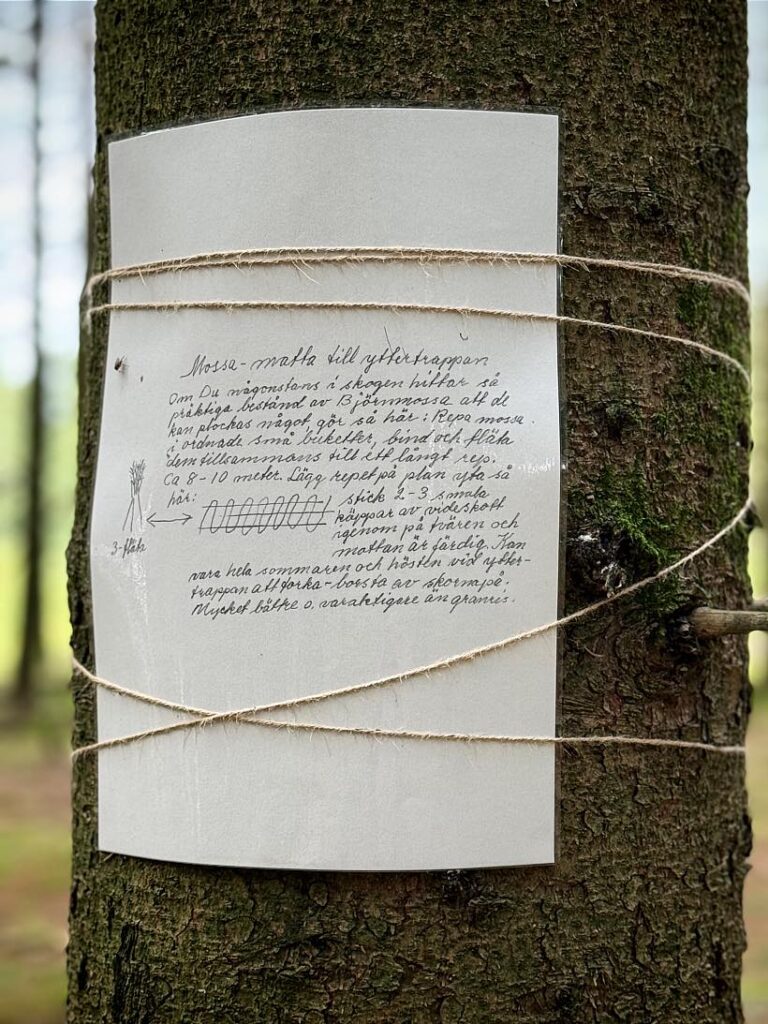 Mossa-matta till yttertrappan
Om Du någonstans i skogen hittar så
präktiga bestånd av Björnmossa att de
kan plockas något, gör så här: Repa mossa
i ordnade små buketter, bind och fläta
dem tillsammans till ett långt rep.
Ca 8-10 meter. Lägg repet på plan yta så
här:
stick 2-3 smala
käppar av videskott
igenom på tvären och
mattan är färdig. Kan
3-fläta
vara hela sommaren och hösten vid ytter-
trappan att torka-borsta av skorna på.
Mycket bättre o. varaktigare än granris.